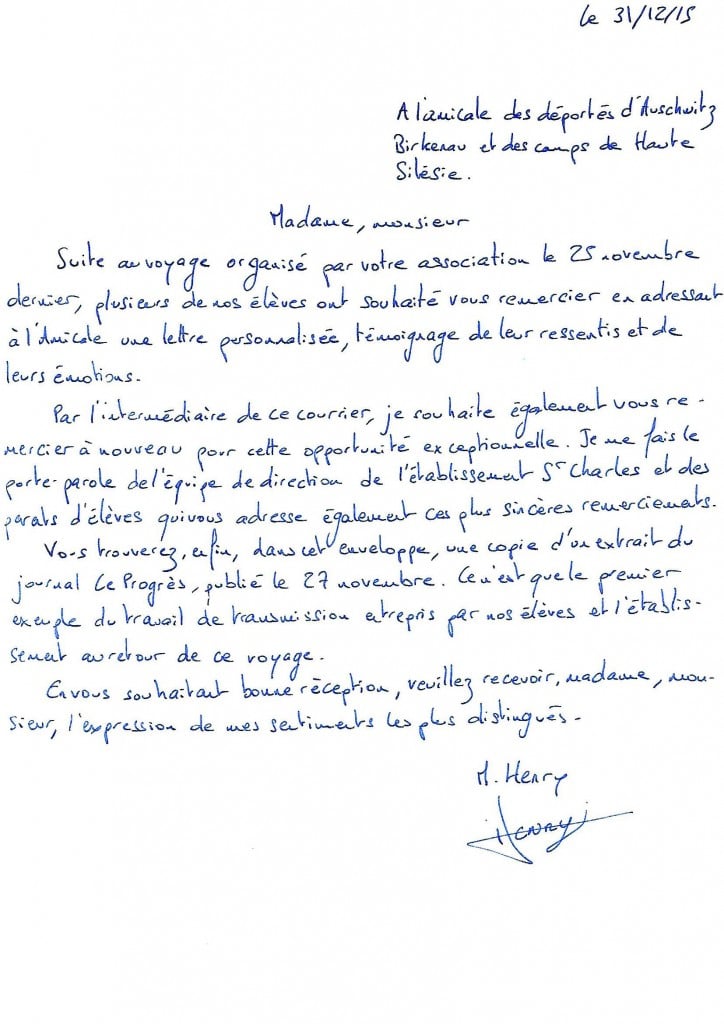 le 31/12/15
A l'amicale des déportés d'Auschwitz
Birkenau et des camps de Haute
Silésie.
Madame, monsieur
Suite au voyage organisé par votre association le 25 novembre
dernier, plusieurs de nos élèves ont souhaité vous remercier en adressant
à l'Amicale une lettre personnalisée, témoignage de leur ressentis et de
leurs émotions.
Par l'intermédiaire de ce courrier, je souhaite également vous re-
mercier à nouveau pour cette opportunité exceptionnelle. Je me fais le
porte-parole de l'équipe de direction de l'établissement St Charles et des
parents d'élèves qui vous adresse également ces plus sincères remerciements.
Vous trouverez, enfin, dans cet enveloppe, une copie d'un extrait du
journal Le Progrès, publié le 27 novembre. Ce n'est que le premier
exemple du travail de transmission entrepris par nos élèves et l'établis-
sement au retour de ce voyage.
En vous souhaitant bonne réception, veuillez recevoir, madame, mon-
sieur, l'expression de mes sentiments les plus distingués.
M. Henry
Henry